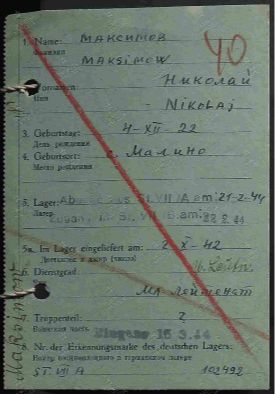 1. Name: МАКСИМОВ
Фамилия
MAKSIMOW
40
Vornamen: НИКОЛАЙ
Имя
NIKOLAJ
3. Geburtstag: 4-XII-22
День рождения
4. Geburtsort: с. МАЛИНО
Место рождения
5. Lager: am: 21-2-44
Лагер
Zugang am: 22.2.44
5a. Im Lager eingeliefert am: 2-X-42
Доставлен в лагер (число)
6. Dienstgrad
МЛ. ЛЕЙТЕНАТ
7. Truppenteil: 2
Воинская часть
Eingang 16 3.44
Nr. der Erkennungsmarke des deutschen Lagers:
ST. VII A 102492